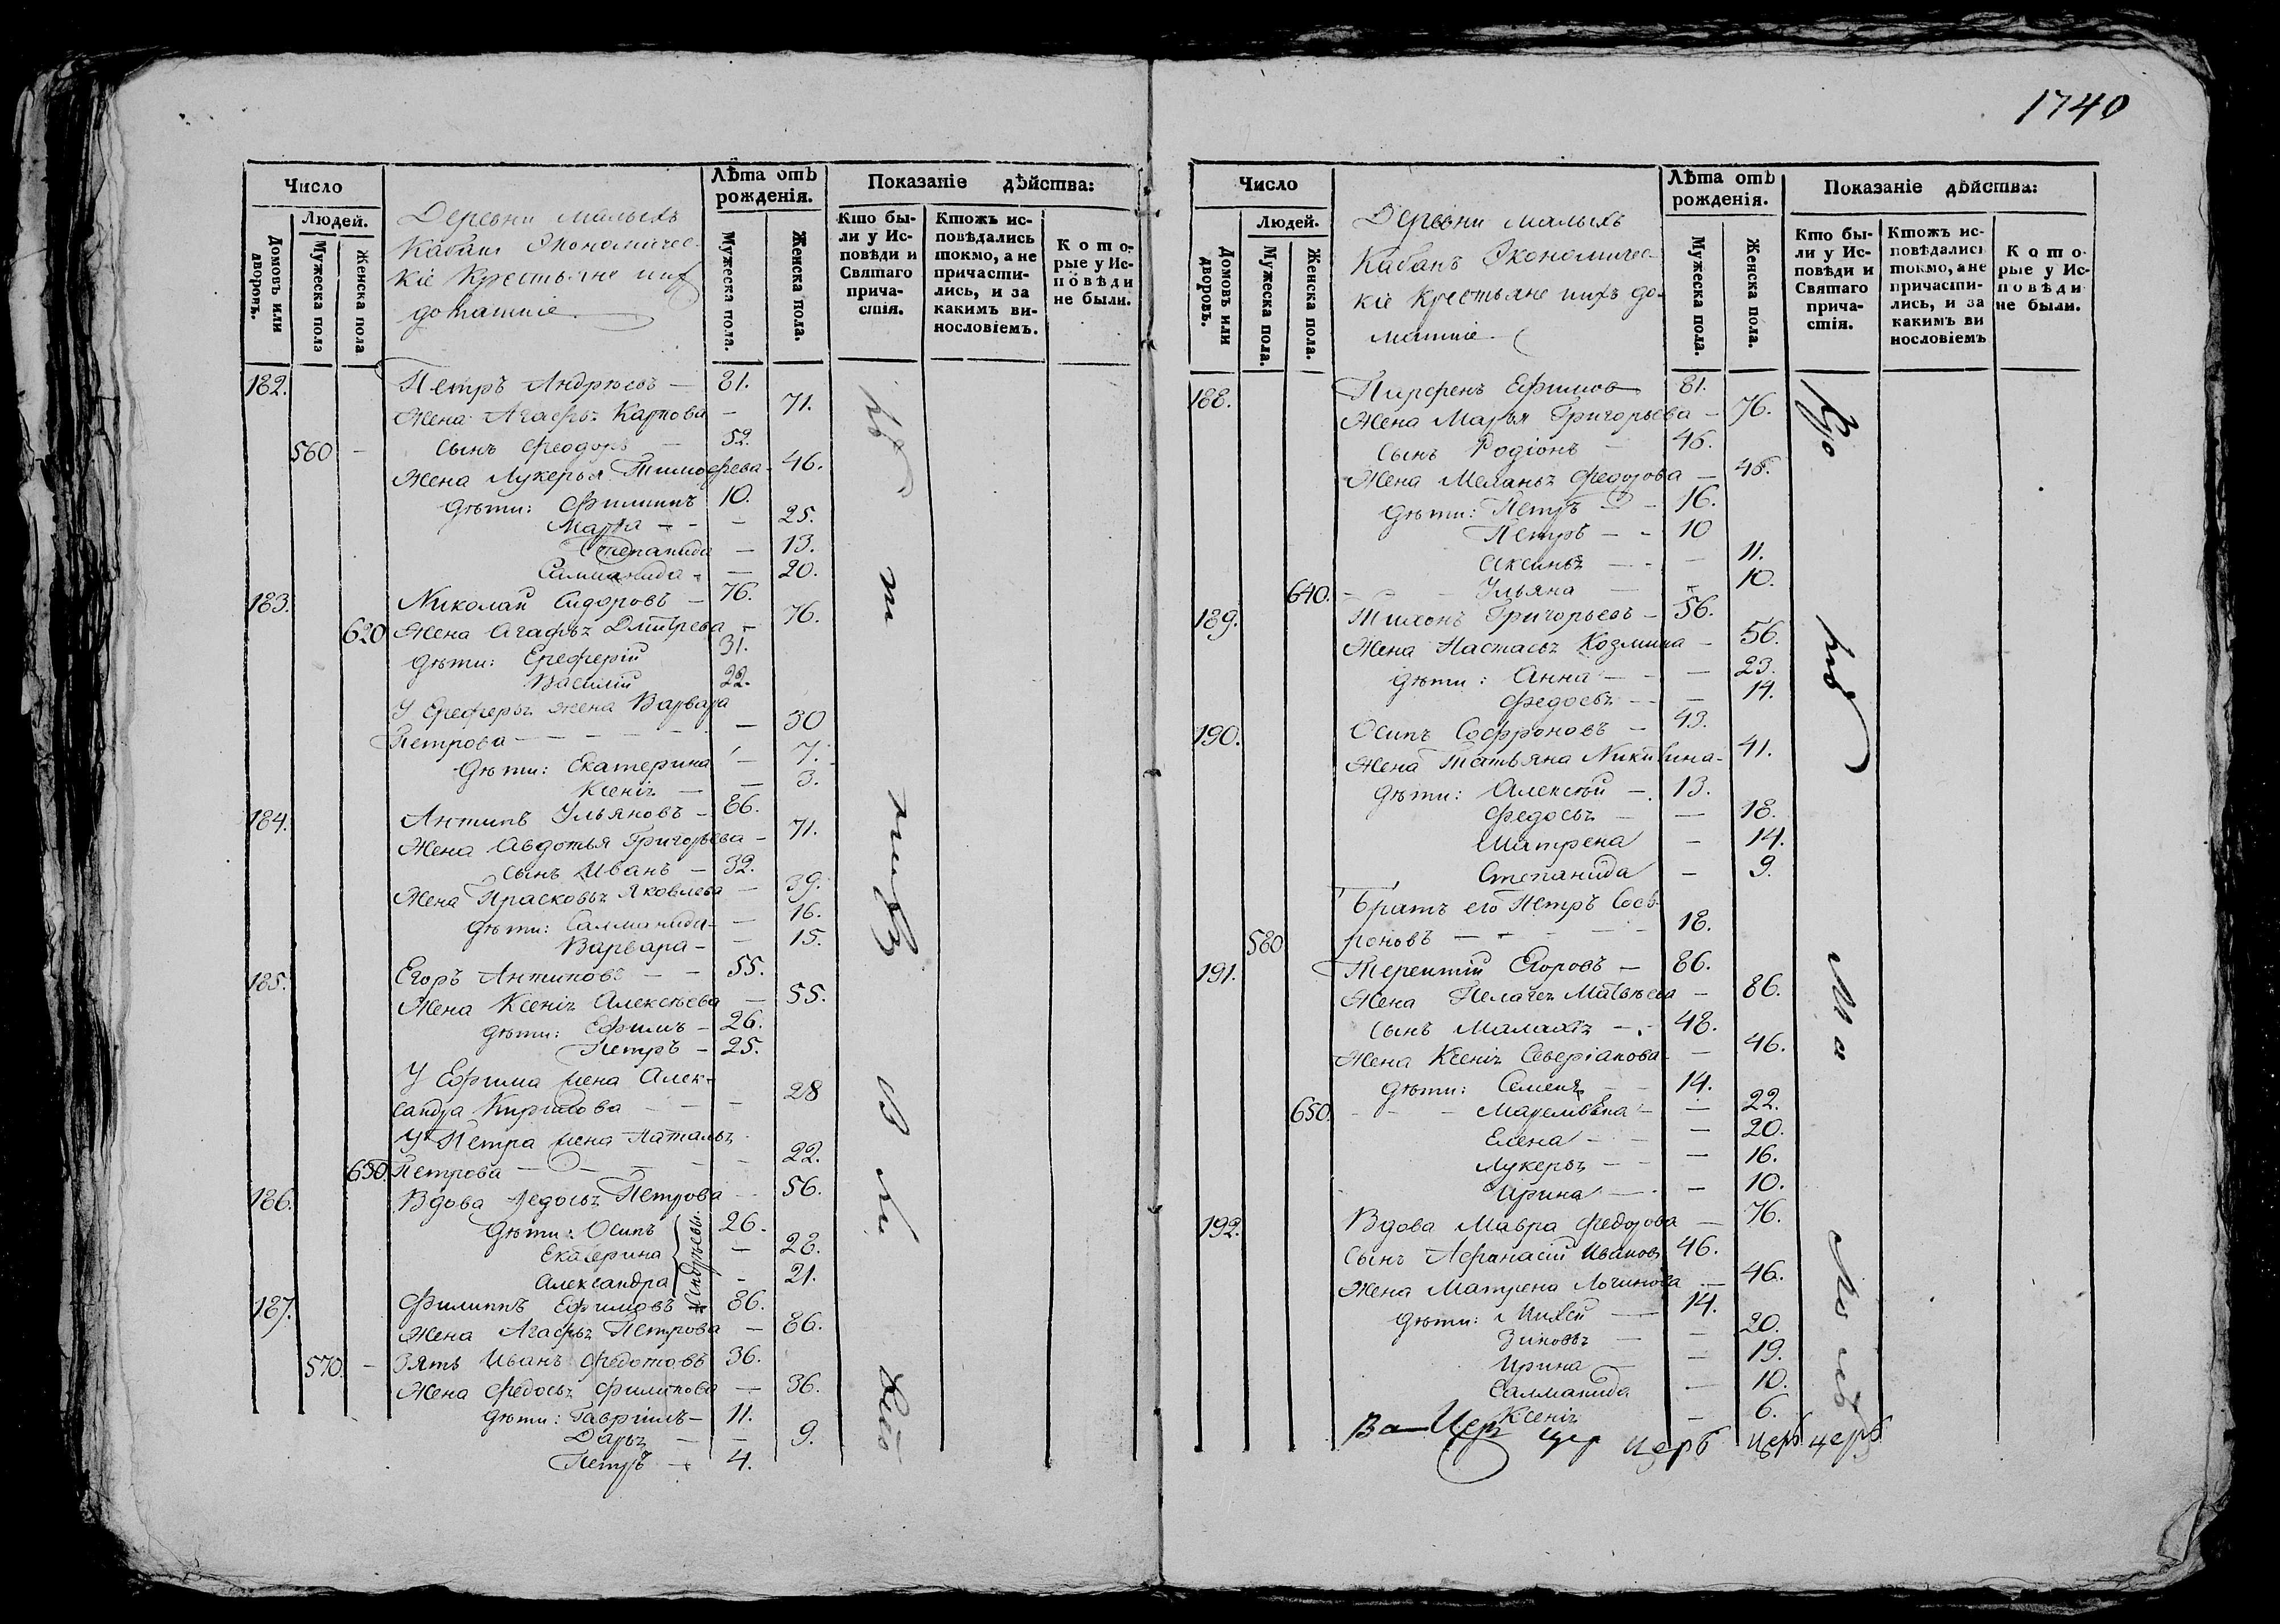 1740
Число
Людей.
Домовъ или дворовъ.
Мужеска пола
Женска пола
Деревни малыхъ
Кабанъ Экономичес-
кіе Крестьяне ихъ
домашніе.
Лѣта отъ рожденія.
Мужеска пола.
Женска пола.
Показаніе дѣйства:
Кто бы-
ли у Ис-
повѣди и
Святаго
прича-
стія.
Ктожъ ис-
повѣдались
токмо, а не
причасти-
лись, и за
какимъ ви-
нословіемъ.
Кото-
рые у Ис-
повѣди
не были.
182. Петръ Андреевъ — 81.
Жена Агафья Карпова — 71.
560 — сынъ Феодоръ — 52.
Жена Лукерья Тимофеева — 46.
дѣти: Филиппъ 10.
Марѳа — — 25.
Степанида — 13.
Саломанида — 20.
183. Николай Сидоровъ — 76.
620 Жена Агафья Дмитрева — 76.
дѣти: Ереферій 31.
Василій 22.
У Ереферья жена Варвара
Петрова — 30
дѣти: Екатерина — 7.
Ксенія — 3.
184. Антипъ Ульяновъ — 86.
Жена Авдотья Григорьева — 71.
сынъ Иванъ — 32.
Жена Прасковья Яковлева — 39.
дѣти: Саломанида — 16.
Варвара — 15.
185. Егоръ Антиповъ — 55.
Жена Ксенія Алексѣева — 55.
дѣти: Ефимъ — 26.
Петръ — 25.
У Ефима жена Алек-
сандра Кирилова — 28
У Петра жена Наталья
630. Петрова — 22.
186. Вдова Ѳедосья Петрова — 56.
дѣти: Осипъ 26.
Екатерина — 28.
Александра — 21.
Андреевы.
187. Филиппъ Ефимовъ 86.
Жена Агафья Петрова — 86.
570. — Зять Иванъ Федотовъ 36.
Жена Федосья Филипова — 36.
дѣти: Гавріилъ — 11.
Дарья — 9.
Петръ — 4.
Число
Людей.
Домовъ или дворовъ.
Мужеска пола.
Женска пола.
Деревни малыхъ
Кабанъ Экономичес-
кіе Крестьяне ихъ до-
машніе.
Лѣта отъ рожденія.
Мужеска пола.
Женска пола.
Показаніе дѣйства:
Кто бы-
ли у Ис-
повѣди и
Святаго
прича-
стія.
Ктожъ ис-
повѣдались
токмо, а не
причасти-
лись, и за
какимъ ви
нословіемъ
Кото-
рые у Ис-
повѣди
не были.
188. Парфенъ Ефимов 81.
Жена Марья Григорьева — 76.
сынъ Родіонъ — 46.
Жена Меланья Федорова — 48.
дѣти: Петръ — 16.
Петръ — 10
Аксинья — 11.
640. Ульяна — 10.
189. Тихонъ Григорьевъ — 56.
Жена Настасья Козмина — 56.
дѣти: Анна — 23.
Федосья — 14.
190. Осипъ Софроновъ — 43.
Жена Татьяна Никитина — 41.
дѣти: Алексѣй — 13.
Федосья — 18.
Матрена — 14.
Степанида — 9.
Братъ его Петръ Соф-
580 роновъ — 18.
191. Терентій Егоровъ — 86.
Жена Пелагея Матвѣева — 86.
сынъ Малахія — 48.
Жена Ксенія Северіанова — 46.
дѣти: Семенъ — 14.
650. — 22.
Елена — 20.
Лукерья — 16.
Ирина — 10.
192. Вдова Мавра Федорова — 76.
сынъ Афанасій Ивановъ 46.
Жена Матрена Логинова — 46.
дѣти: Михей — 14.
Зиновья — 20.
Ирина — 19.
Саломанида — 10.
Ксенія — 6.